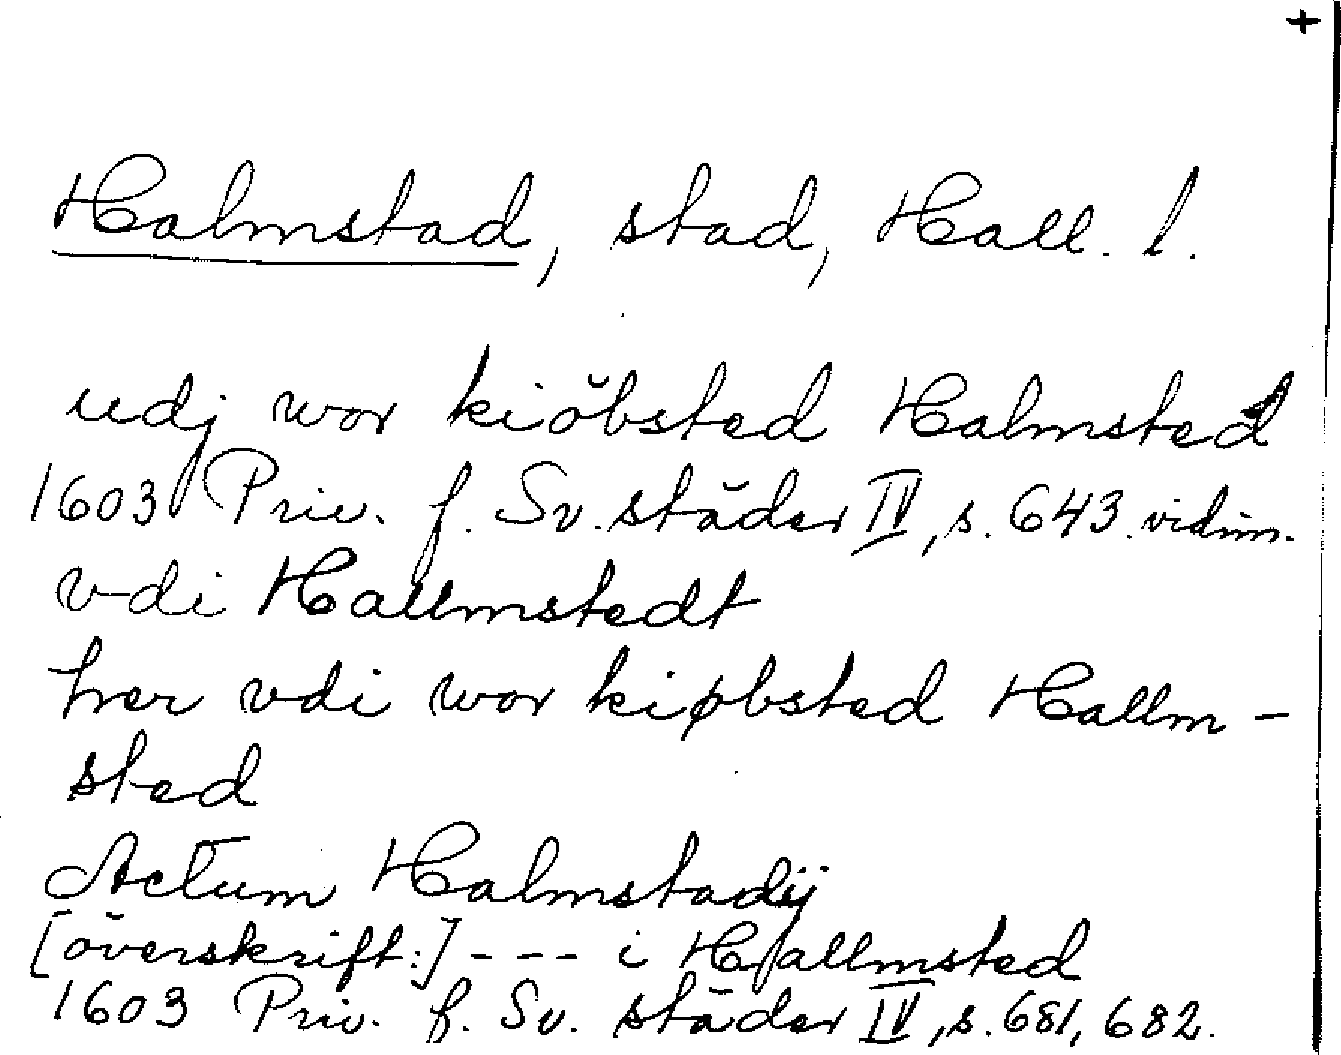 +
Halmstad, stad, Hall. l.
udj wor kiöbsted Halmsted
1603 Priv. f. Sv. städer IV, s. 643. vidim.
vdi Hallmstedt
her vdi wor kiøbsted Hallm-
sted
Actum Halmstadij
[överskrift:] --- i Hallmsted
1603 Priv. f. Sv. städer IV, s. 681, 682.